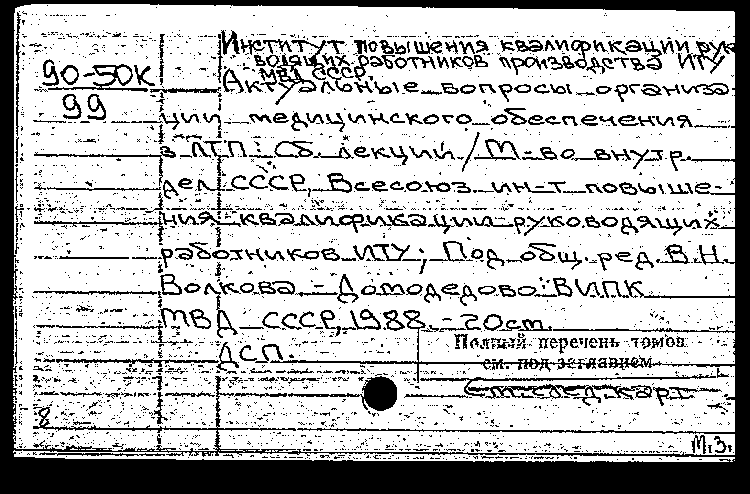 Институт повышения квалификации рук
водящих работников производства ИТУ
МВД СССР.
90-50К
99
Актуальные вопросы организа-
ции медицинского обеспечения
в ЛТП: Сб. лекций / М-во внутр.
дел СССР, Всесоюз. ин-т повыше-
ния квалификации руководящих
работников ИТУ; Под общ. ред. В.Н.
Волкова. - Домодедово: ВИПК
МВД СССР, 1988. - 20 см.
ДСП.
Полный перечень томов
см. под заглавием
см. след. карт
8
М.З.